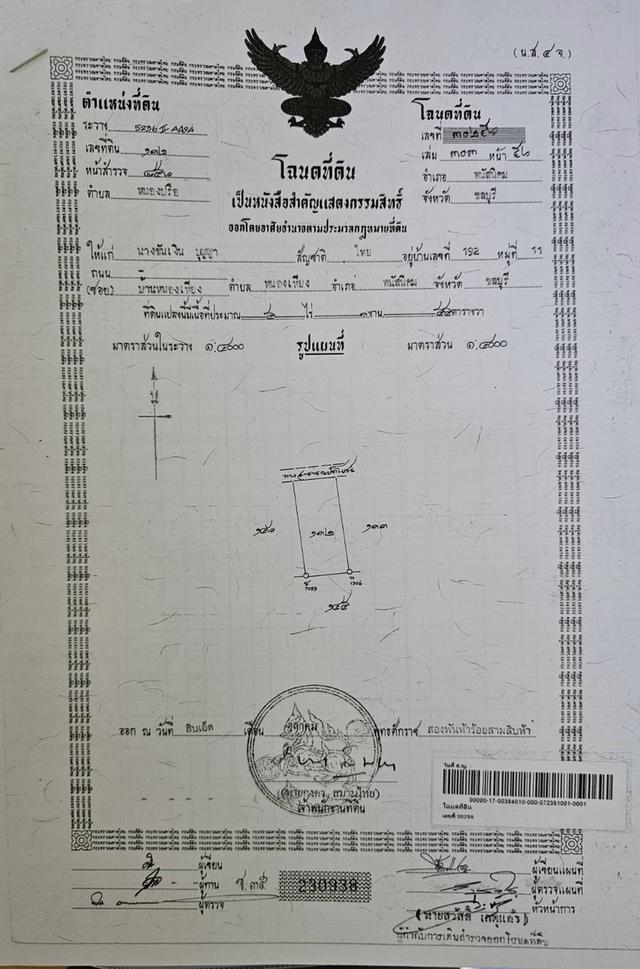 (น.ส.๔ จ.)
ตำแหน่งที่ดิน
ระวาง 5236 II 4494
เลขที่ดิน ๑๓๒
หน้าสำรวจ
ตำบล หนองปรือ
โฉนดที่ดิน
เลขที่ ๓๐๒๕๖
เล่ม ๓๐๓ หน้า ๕๖
อำเภอ พนัสนิคม
จังหวัด ชลบุรี
โฉนดที่ดิน
เป็นหนังสือสำคัญแสดงกรรมสิทธิ์
ออกโดยอาศัยอำนาจตามประมวลกฎหมายที่ดิน
ให้แก่ นางขันเงิน บุญญา สัญชาติ ไทย อยู่บ้านเลขที่ 192 หมู่ที่ 11
ถนน
(ซอย) บ้านหนองเหียง ตำบล หนองเหียง อำเภอ พนัสนิคม จังหวัด ชลบุรี
ที่ดินแปลงนี้มีเนื้อที่ประมาณ ไร่ ๓ งาน ตารางวา
มาตราส่วนในระวาง ๑:๔๐๐๐ รูปแผนที่ มาตราส่วน ๑:๔๐๐๐
น
ทางสาธารณประโยชน์
๑๓๒ ๑๓๓
ออก ณ วันที่ สิบเอ็ด เดือน ตุลาคม พุทธศักราช สองพันห้าร้อยสามสิบห้า
เจ้าพนักงานที่ดิน
วันที่ ศ.ญ.
00000-17-00354010-000-072351001-0001
โฉนดที่ดิน
เลขที่ 30256
ผู้เขียน
ผู้ทาน
ผู้ตรวจ
ช.๓๕ 230938
ผู้เขียนแผนที่
ผู้ตรวจแผนที่
หัวหน้าการ
(นายสวัสดิ์ เกตุแก้ว)
ผู้กำกับการเดินสำรวจออกโฉนดที่ดิน